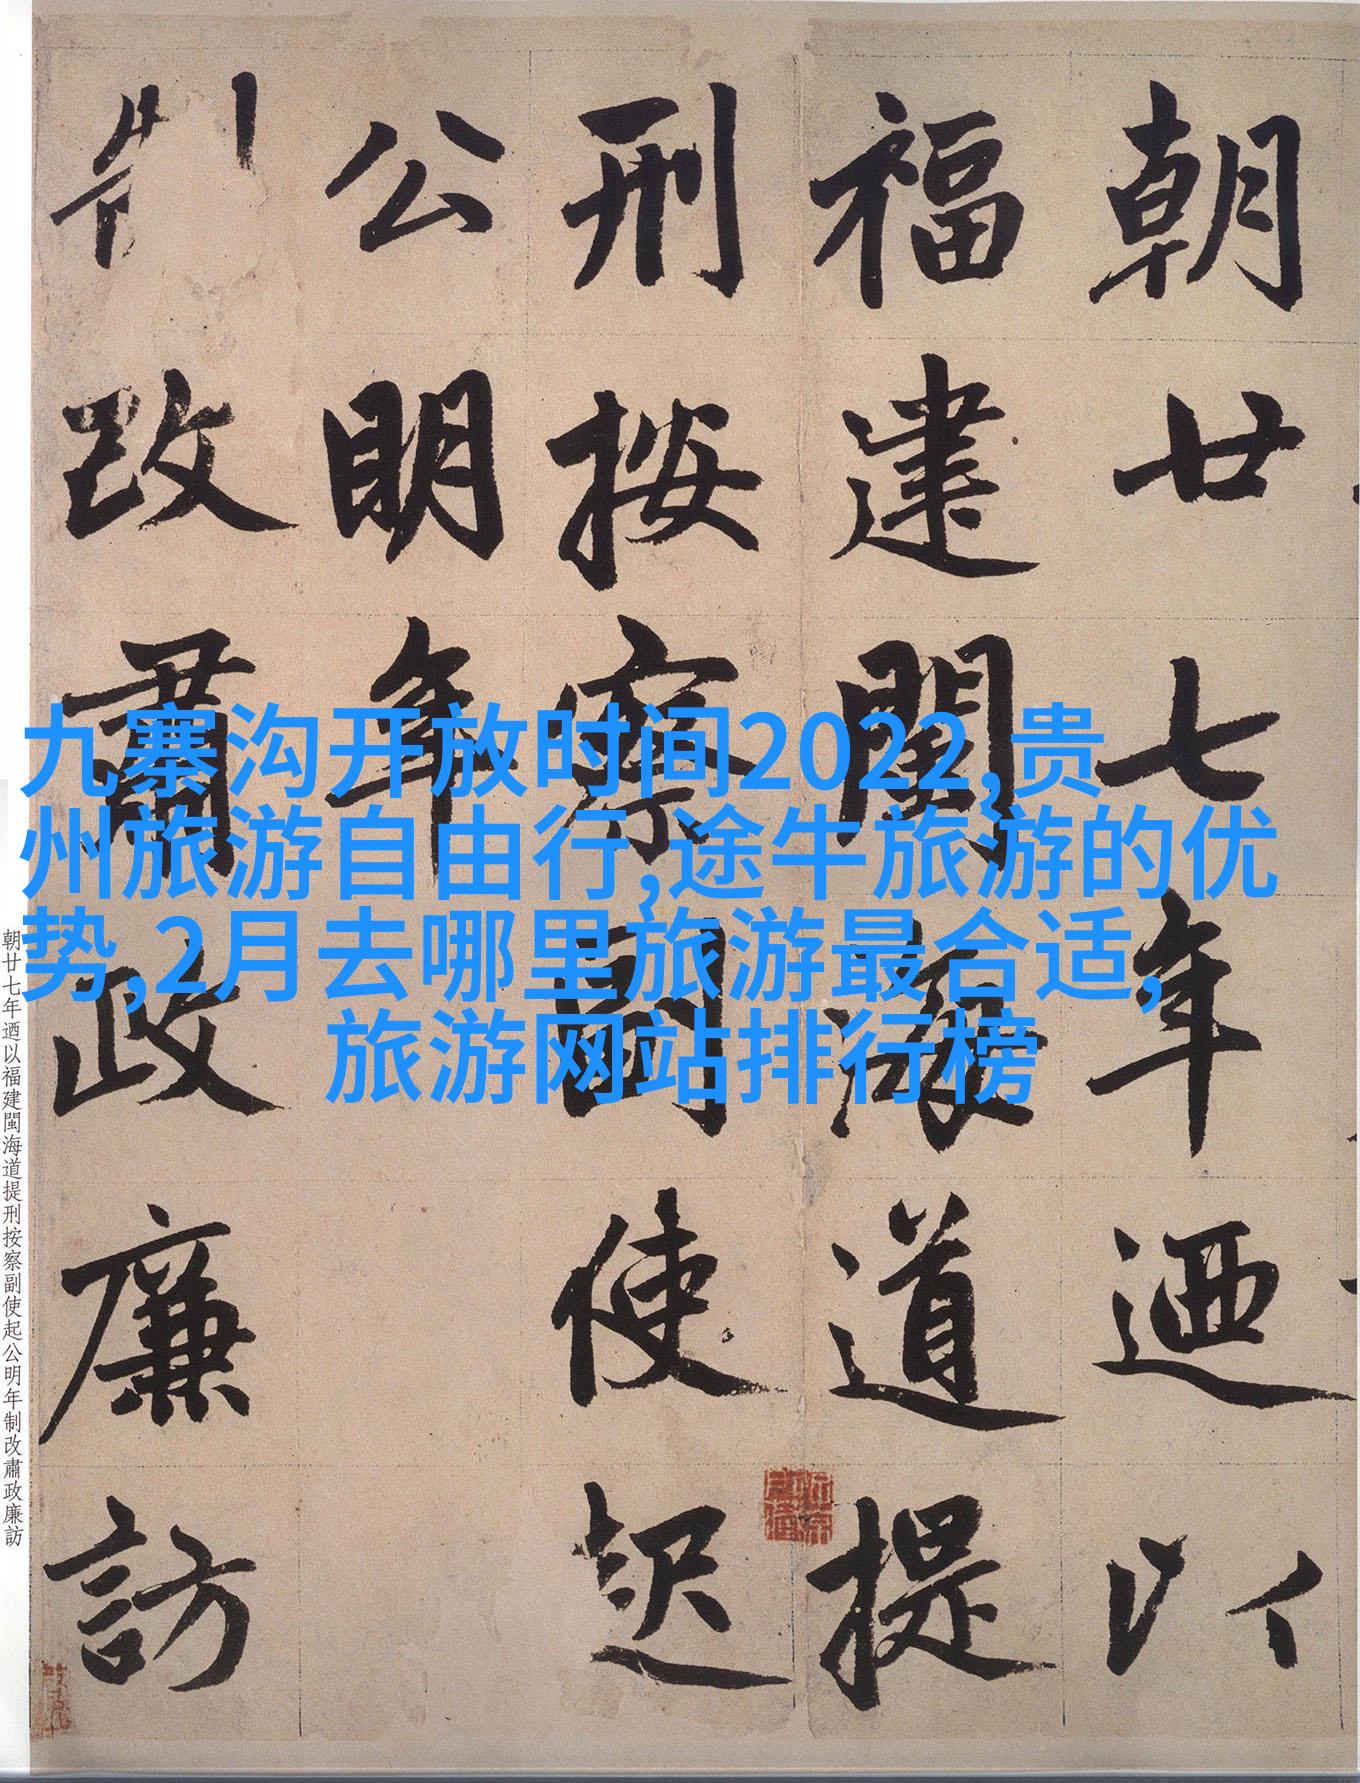 朝廿七年迺以
福建閩海道提
刑按察副使起
公明年
制改肅政廉訪
九寨沟开放时间2022,贵
州旅游自由行,途牛旅游的优
势,2月去哪里旅游最合适,
旅游网站排行榜
朝廿七年迺以福建閩海道提刑按察副使起公明年制改肅政廉訪